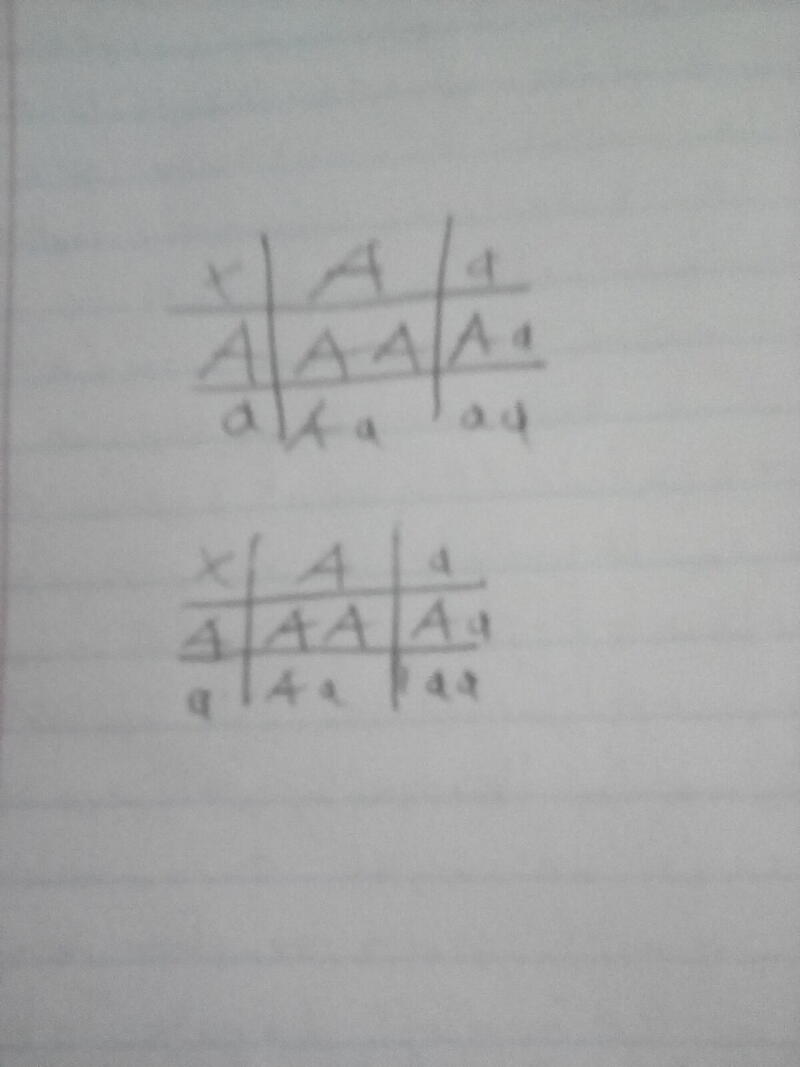 x A a
A AA Aa
a Aa aa
x A a
A AA Aa
a Aa aa